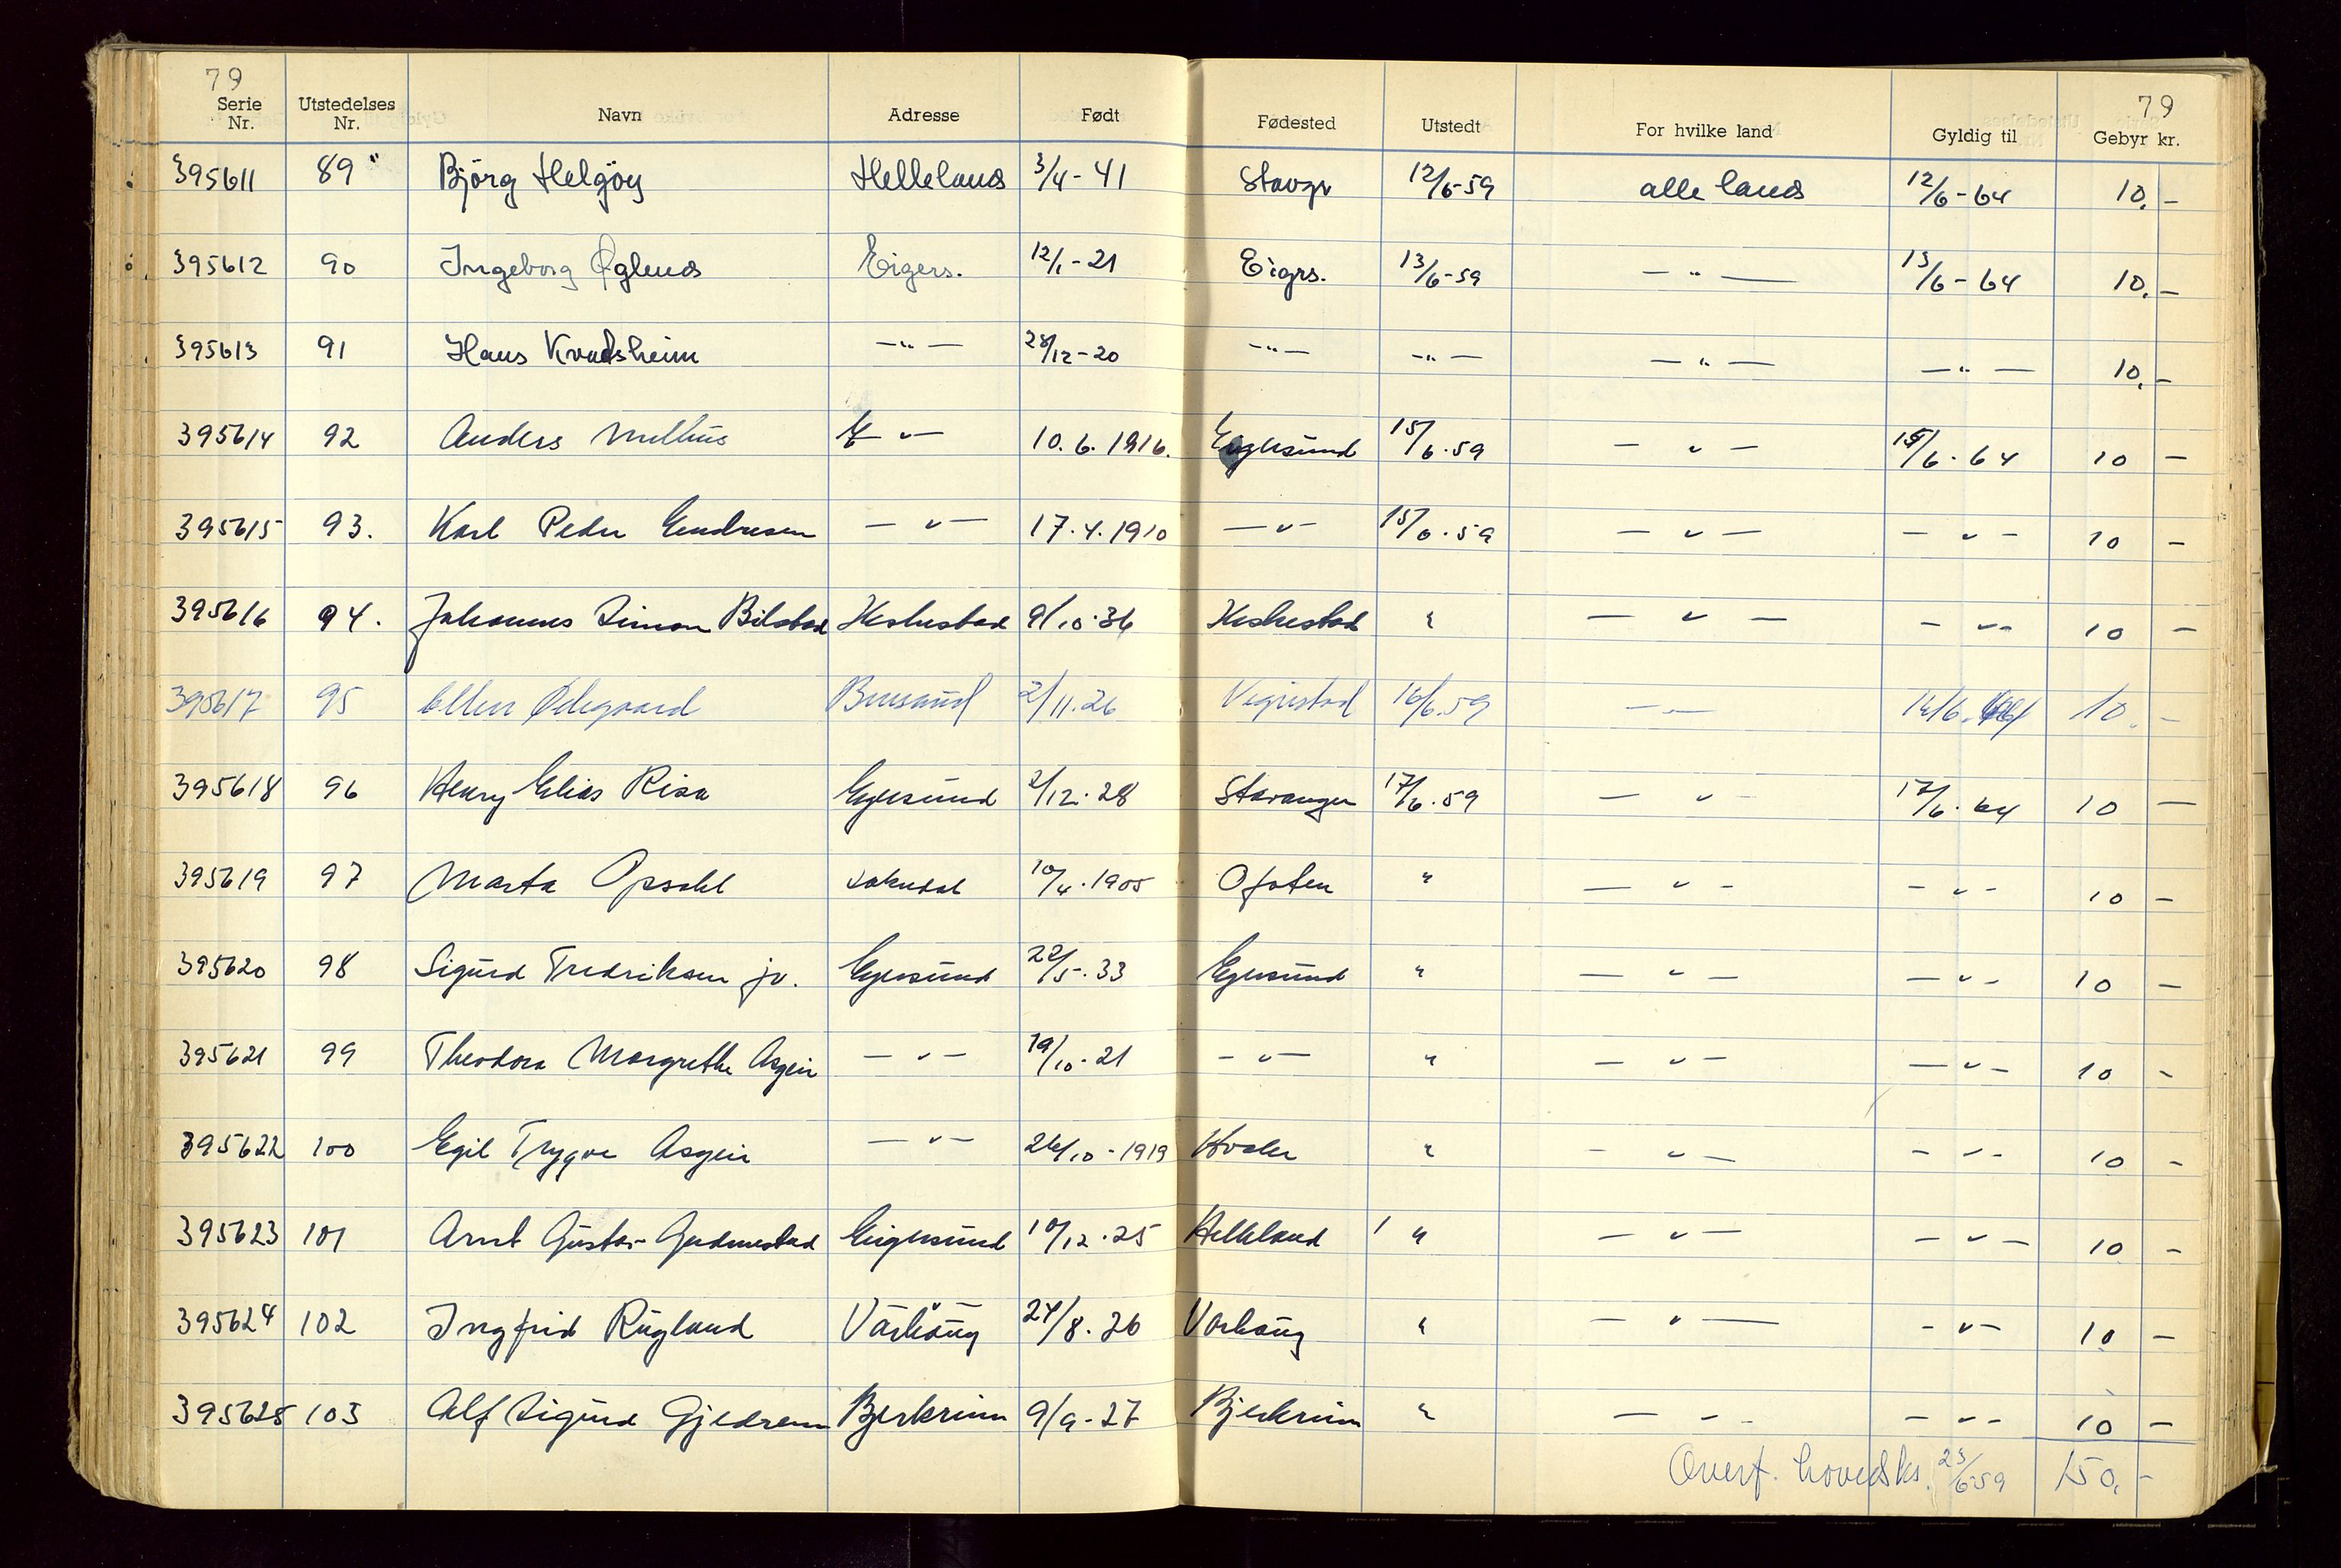 79 79
Serie Nr. Utstedelses Nr. Navn Adresse Født Fødested Utstedt For hvilke land Gyldig til Gebyr kr.
395611 89 Bjørg Helgøy Helleland 3/4-41 Stavgr 12/6-59 alle land 12/6-64 10,-
395612 90 Ingeborg Øglend Eigers. 12/1-21 Eigrs. 13/6-59 -"- 13/6-64 10,-
395613 91 Hans Kvadsheim -"- 28/12-20 -"- -"- -"- -"- 10,-
395614 92 Anders Mellhus -"- 10.6.1916. Egersund 15/6.59 -"- 15/6.64 10 -
395615 93. Karl Peder Endresen -"- 17.4.1910 -"- 15/6.59 -"- -"- 10 -
395616 94. Johannes Simon Bilstad Heskestad 9/10.36 Heskestad " -"- -"- 10 -
395617 95 Ellen Ødegaard Brusand 2/11.26 Vigrestad 16/6.59 -"- 16/6.64 10.-
395618 96 Henry Elias Risa Egersund 2/12.28 Stavanger 17/6.59 -"- 17/6.64 10 -
395619 97 Marta Opsahl Sokndal 10/4.1905 Ofoten " -"- -"- 10 -
395620 98 Sigurd Fredriksen jr. Egersund 22/5.33 Egersund " -"- -"- 10 -
395621 99 Theodora Margrethe Asgeir -"- 19/10.21 -"- " -"- -"- 10 -
395622 100 Egil Trygve Asgeir -"- 26/10-1919 Hvaler " -"- -"- 10 -
395623 101 Arnt Gustav Gudmestad Eigersund 10/12.25 Helleland " -"- -"- 10 -
395624 102 Ingfrid Rugland Varhaug 24/8.26 Varhaug " -"- -"- 10 -
395625 103 Alf Sigurd Gjedrem Bjerkreim 9/9-27 Bjerkreim " -"- -"- 10 -
Overf. hovedks. 23/6-59 150,-